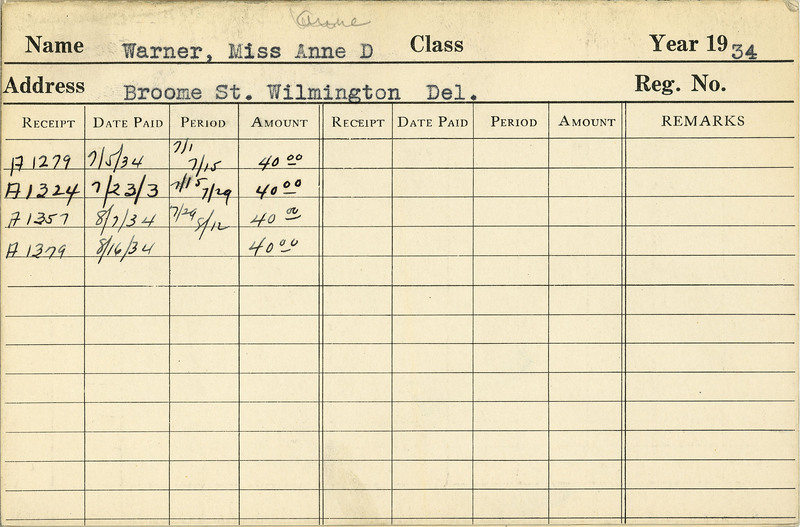 Name Warner, Miss Anne D Class Year 1934
Address Broome St. Wilmington Del. Reg. No.
RECEIPT DATE PAID PERIOD AMOUNT RECEIPT DATE PAID PERIOD AMOUNT REMARKS
A1279 7/5/34 7/1 7/15 40 00
A1324 7/23/3 7/15 7/29 40 00
A1357 8/7/34 7/29 8/12 40 00
A1379 8/16/34 40 00